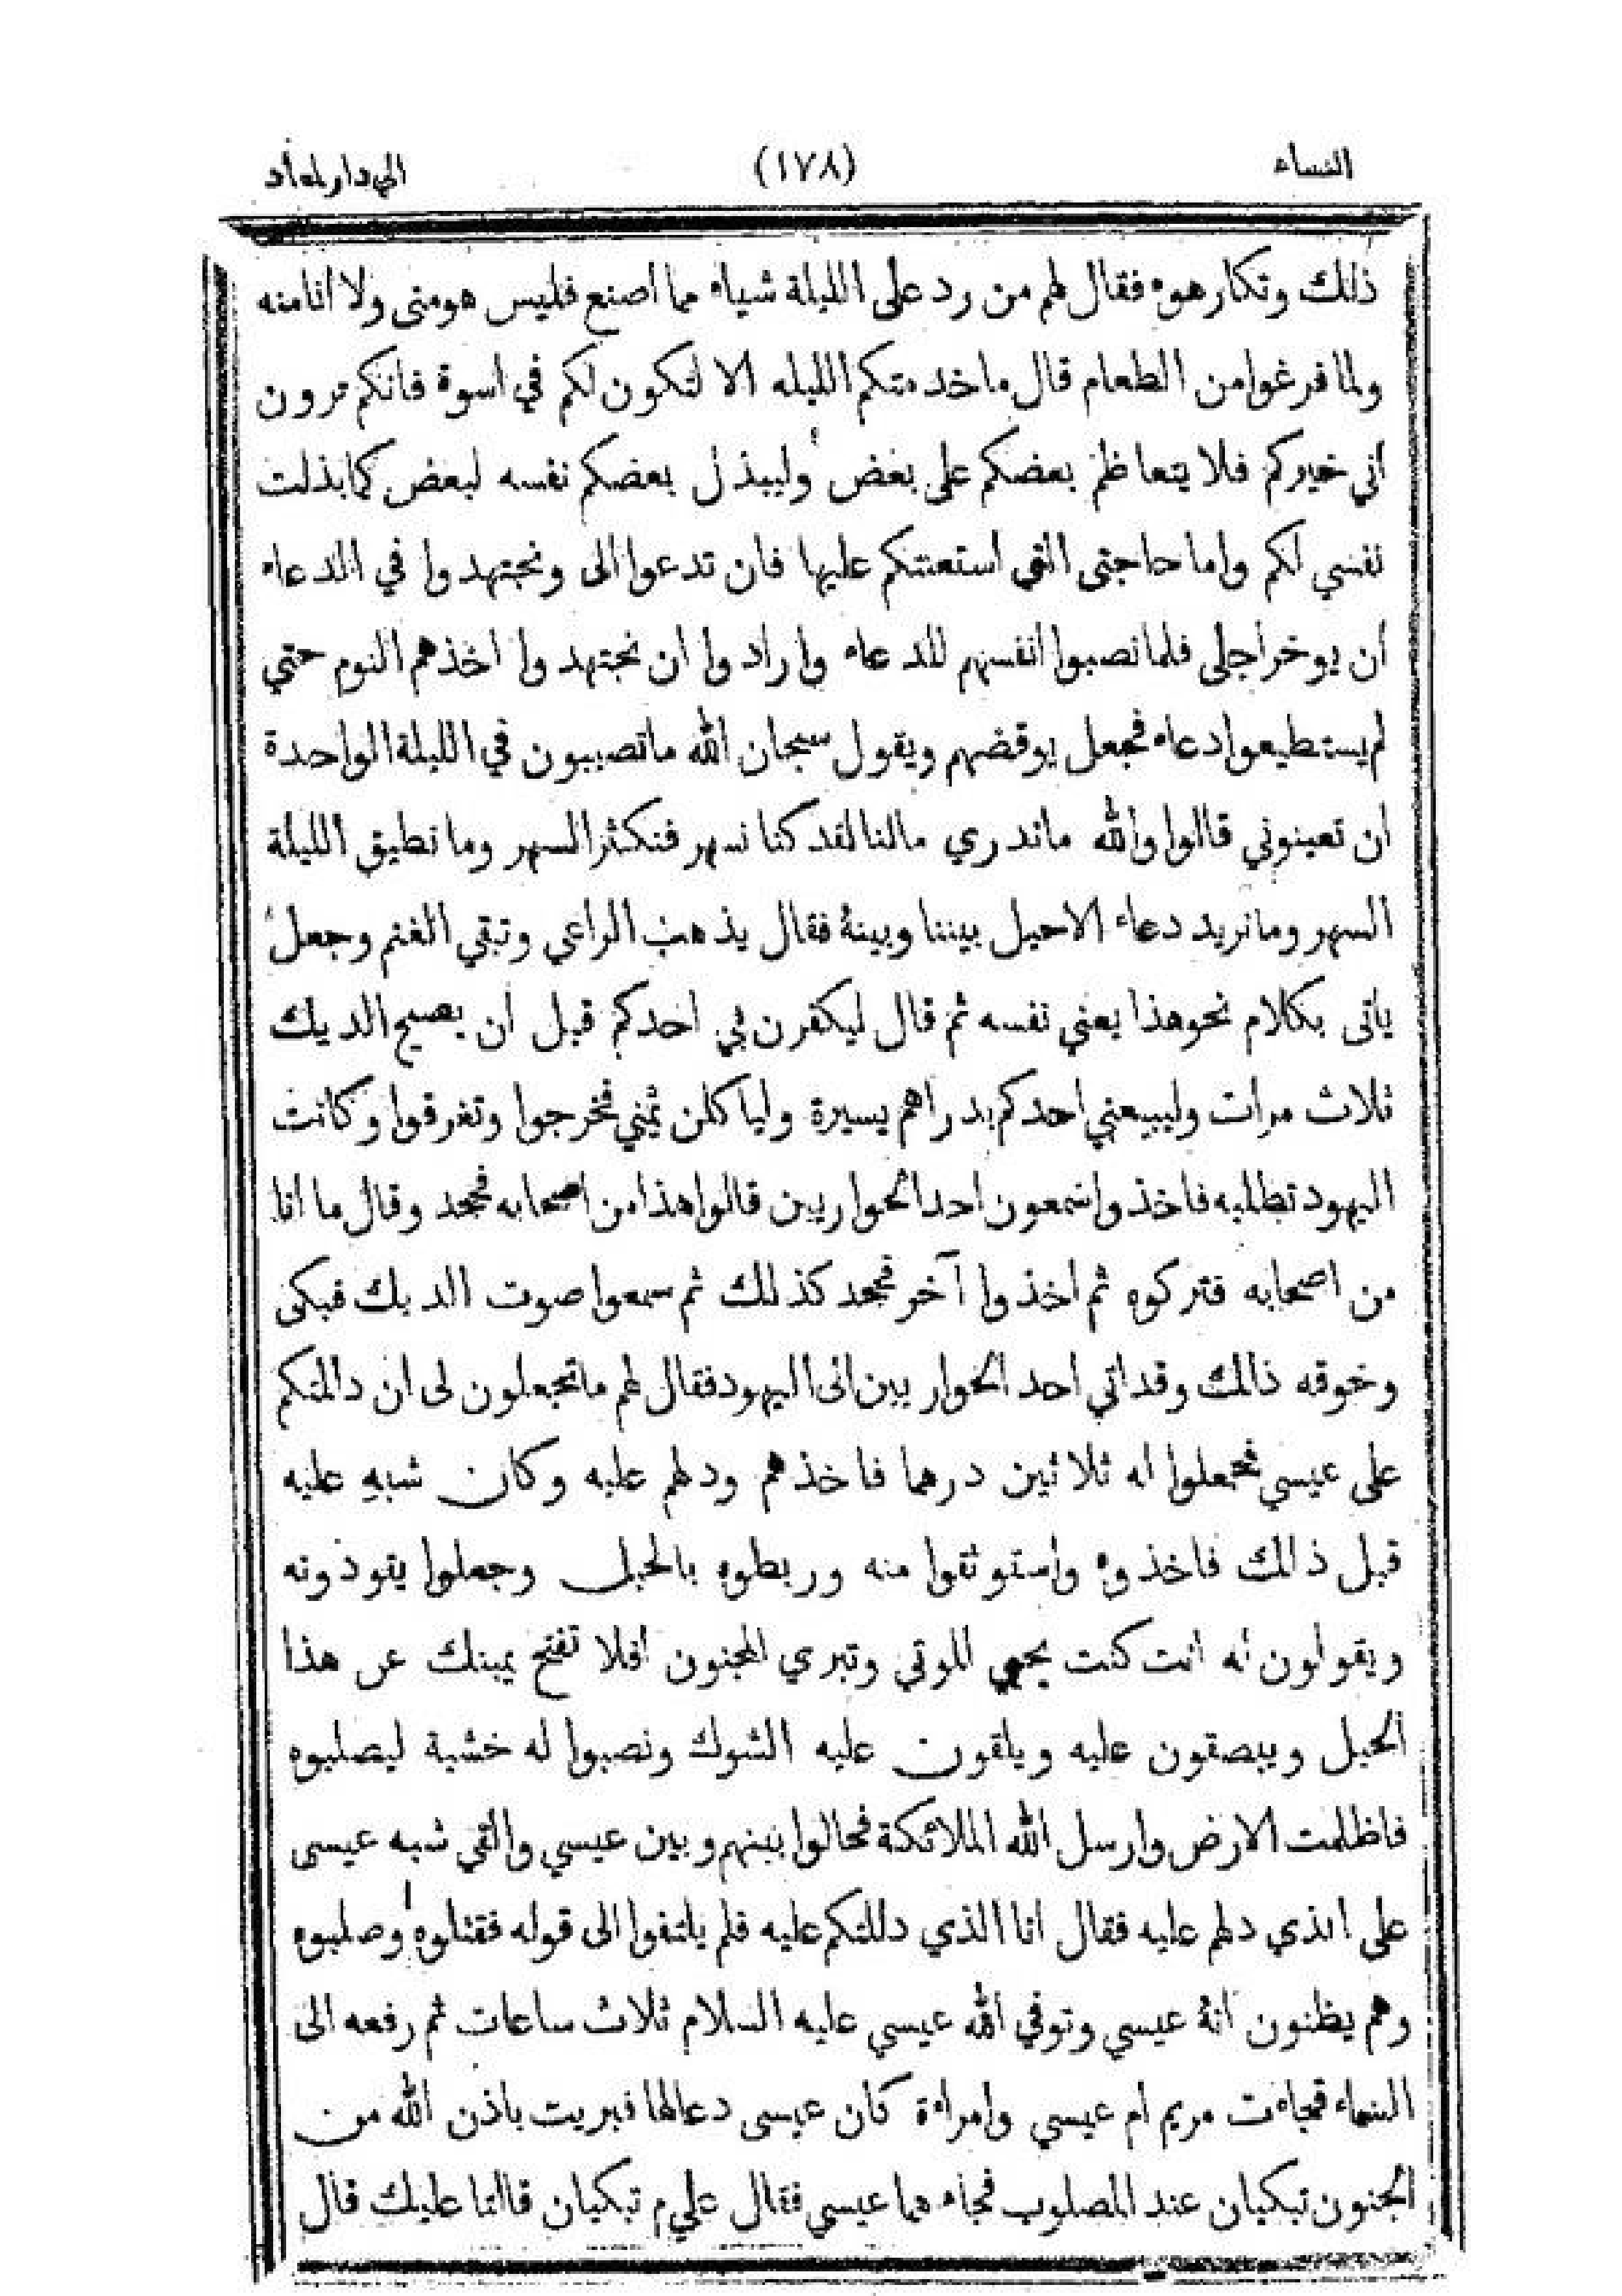 النساء (١٧٨) الي دار لمعاد
ذلك وتكارهوه فقال لهم من رد على الليلة شياء مما اصنع فليس هو منى ولا انا منه
ولما فرغوا من الطعام قال ما خدمتكم الليله الا لتكون لكم في اسوة فانكم ترون
اني خيركم فلا يتعاظم بعضكم على بعض وليبذل بعضكم نفسه لبعض كما بذلت
نفسي لكم واما حاجتى التى استعنتكم عليها فان تدعوا الى ونجتهدوا في الدعاء
ان يوخر اجلى فلما نصبوا انفسهم للدعاء وارادوا ان نجتهدوا اخذهم النوم حتي
لم يستطيعوا دعاء فجعل يوقضهم ويقول سبحان الله ما تصيبون في الليلة الواحدة
ان تعينوني قالوا والله ماندري مالنا لقد كنا نسهر فنكثر السهر وما نطيق الليلة
السهر وما نريد دعاء الاحيل بيننا وبينهُ فقال يذهب الراعي وتبقي الغنم وجعل
ياتى بكلام نحو هذا يعني نفسه ثم قال ليكفرن بي احدكم قبل ان يصيح الديك
ثلاث مرات وليبيعني احدكم بدراهم يسيرة ولياكلن ثمني فخرجوا وتفرقوا وكانت
اليهود تطلبه فاخذوا شمعون احد الحواريين قالوا هذا من اصحابه فجحد وقال ما انا
من اصحابه فتركوه ثم اخذوا آخر فجحد كذلك ثم سمعوا صوت الديك فبكى
وخوقه ذالك وقد اتي احد الحواريين الى اليهود فقال لهم ما تجعلون لى ان دالتكم
على عيسي فجعلوا له ثلاثين درهما فاخذهم ودلهم عليه وكان شبه عليه
قبل ذالك فاخذوه واستوثقوا منه وربطوه بالحبل وجعلوا يقودونه
ويقولون له انت كنت يحيي الموتي وتبري المجنون افلا تفتح يمينك عن هذا
الحبل ويبصقون عليه ويلقون عليه الشوك ونصبوا له خشبة ليصلبوه
فاظلمت الارض وارسل الله الملائكة فحالوا بينهم وبين عيسي والقي شبه عيسى
على الذي دلهم عليه فقال انا الذي دللتكم عليه فلم يلتفوا الى قوله فقتلوه وصلبوه
وهم يظنون انهُ عيسي وتوفي الله عيسي عليه السلام ثلاث ساعات ثم رفعه الى
السماء فجاءت مريم ام عيسي وامراءة كان عيسى دعالها فبريت باذن الله من
الجنون تبكيان عند المصلوب فجاء هما عيسي فقال علي م تبكيان قالتا عليك قال